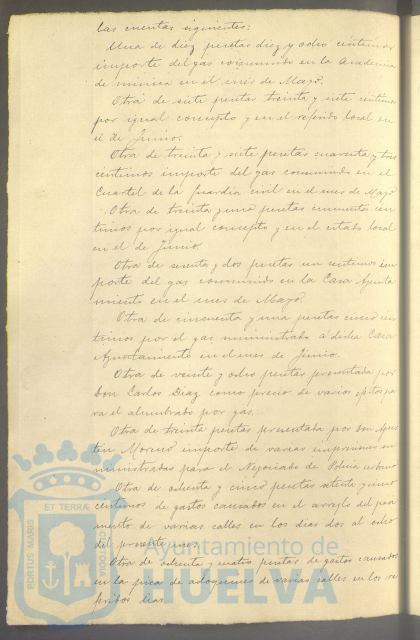 las cuentas siguientes:
Una de diez pesetas diez y ocho céntimos
importe del gas consumido en la Academia
de música en el mes de Mayo.
Otra de siete pesetas treinta y siete céntimos
por igual concepto y en el referido local en
el de Junio.
Otra de treinta y siete pesetas cuarenta y tres
céntimos importe del gas consumido en el
Cuartel de la Guardia civil en el mes de Mayo
Otra de treinta y una pesetas cincuenta cen
timos por igual concepto y en el citado local
en el de Junio.
Otra de sesenta y dos pesetas un céntimo im
porte del gas consumido en la Casa Ayunta
miento en el mes de Mayo.
Otra de cincuenta y una pesetas cinco cen
timos por el gas suministrado a dicha Casa
Ayuntamiento en el mes de Junio.
Otra de veinte y ocho pesetas presentada por
Don Carlos Diaz como precio de varios efectos pa
ra el alumbrado por gas.
Otra de treinta pesetas presentada por Don Agus
tin Moreno importe de varias impresiones su
ministradas para el Negociado de Policia urbana
Otra de ochenta y cinco pesetas setenta y cinco
centimos de gastos causados en el arreglo del pavi
mento de varias calles en los dias dos al ocho
del presente mes.
Otra de ochenta y cuatro pesetas de gastos causados
en la pica de adoquines de varias calles en los re
feridos dias.
PORTUS MARIS
ET TERRÆ
CUSTODIA
Ayuntamiento de
HUELVA